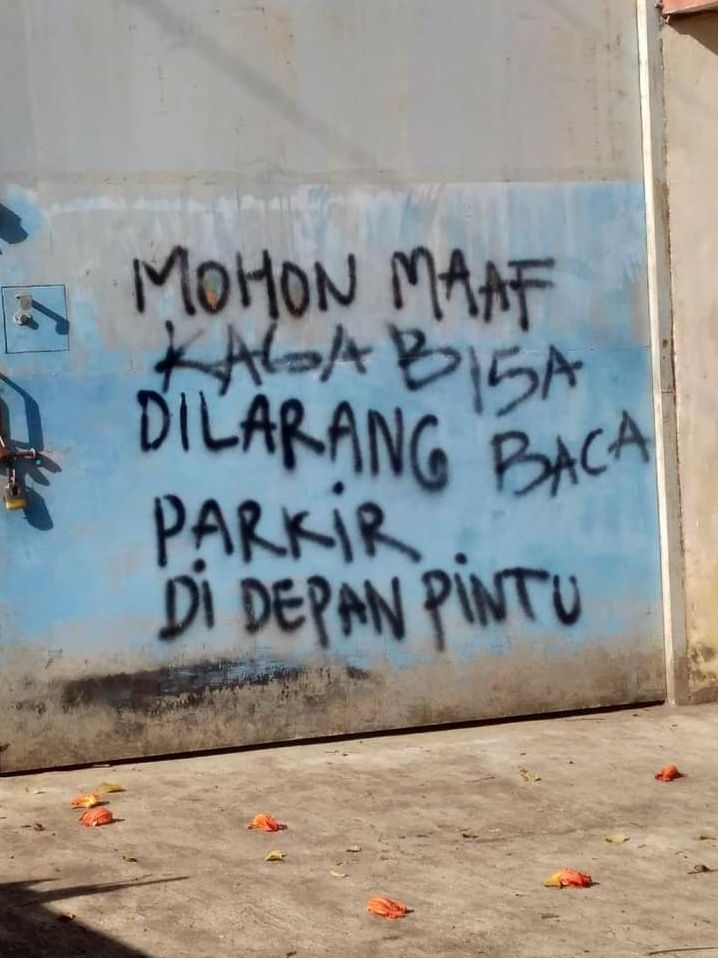 MOHON MAAF
KAGA BISA
DILARANG BACA
PARKiR
Di DEPAN PiNTU